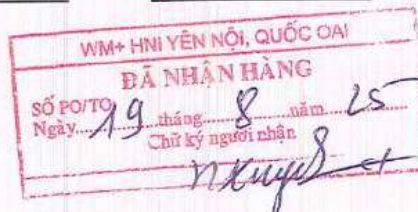 WM+ HNI YÊN NỘI, QUỐC OAI
ĐÃ NHẬN HÀNG
SỐ PO/TO
Ngày 19 tháng 8 năm 25
Chữ ký người nhận